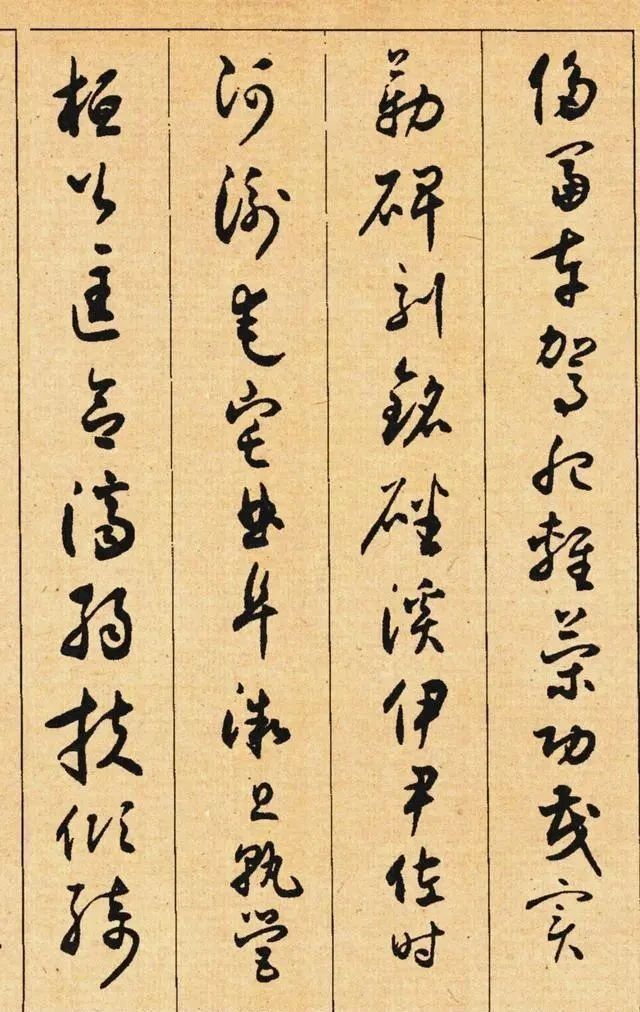 侈富車駕肥輕策功茂實
勒碑刻銘磻溪伊尹佐時
阿衡奄宅曲阜微旦孰營
桓公匡合濟弱扶傾綺